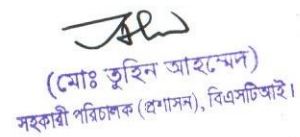 (মোঃ তুহিন আহম্মেদ)
সহকারী পরিচালক (প্রশাসন), বিএসটিআই।